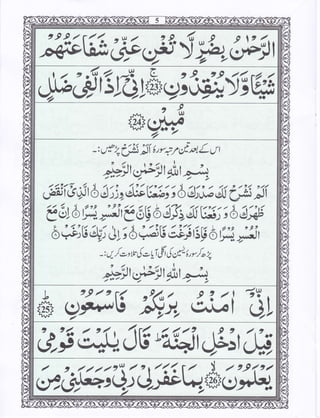 5
الرَّحْمٰنُ بِضُرٍّ لَّا تُغْنِ عَنِّیْ شَفَاعَتُهُمْ
شَیْـًٔا وَّلَا یُنْقِذُوْنِ ۚ 23 اِنِّیْۤ اِذًا لَّفِیْ ضَلٰلٍ
مُّبِیْنٍ 24
اس کے بعد تین مرتبہ سورۂ اَلَمْ نَشْرَحْ پڑھیں:۔
بِسْمِ اللّٰهِ الرَّحْمٰنِ الرَّحِیْمِ
اَلَمْ نَشْرَحْ لَكَ صَدْرَكَ ۝ وَ وَضَعْنَا عَنْكَ وِزْرَكَ ۝ الَّذِیْۤ اَنْقَضَ
ظَهْرَكَ ۝ وَ رَفَعْنَا لَكَ ذِكْرَكَ ۝ فَاِنَّ مَعَ الْعُسْرِ یُسْرًا ۝ اِنَّ مَعَ
الْعُسْرِ یُسْرًا ۝ فَاِذَا فَرَغْتَ فَانْصَبْ ۝ وَ اِلٰی رَبِّكَ فَارْغَبْ ۝
پڑھ کر سورۂ یٰسین کی اگلی آیات کی تلاوت کریں:۔
بِسْمِ اللّٰهِ الرَّحْمٰنِ الرَّحِیْمِ
اِنِّیْۤ اٰمَنْتُ بِرَبِّكُمْ فَاسْمَعُوْنِ ؕ 25
قِیْلَ ادْخُلِ الْجَنَّةَ ؕ قَالَ یٰلَیْتَ قَوْمِیْ
یَعْلَمُوْنَ ۙ 26 بِمَا غَفَرَ لِیْ رَبِّیْ وَجَعَلَنِیْ مِنَ